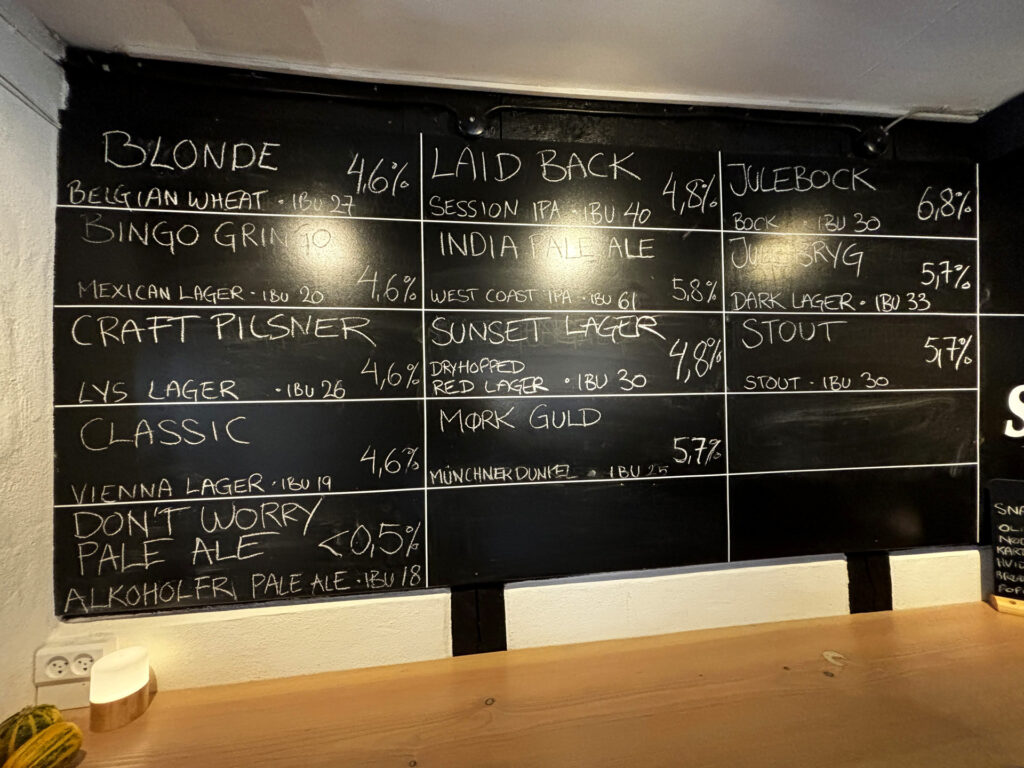 BLONDE 4,6%
BELGIAN WHEAT · IBU 27
BINGO GRINGO
MEXICAN LAGER · IBU 20 4,6%
CRAFT PILSNER
LYS LAGER · IBU 26 4,6%
CLASSIC
VIENNA LAGER · IBU 19 4,6%
DON'T WORRY
PALE ALE <0,5%
ALKOHOLFRI PALE ALE · IBU 18
LAID BACK
SESSION IPA · IBU 40 4,8%
INDIA PALE ALE
WEST COAST IPA · IBU 61 5,8%
SUNSET LAGER
DRYHOPPED 4,8%
RED LAGER · IBU 30
MØRK GULD
MÜNCHNER DUNKEL · IBU 25 5,7%
JULEBOCK
BOCK · IBU 30 6,8%
JULEBRYG
DARK LAGER · IBU 33 5,7%
STOUT
STOUT · IBU 30 5,7%
S